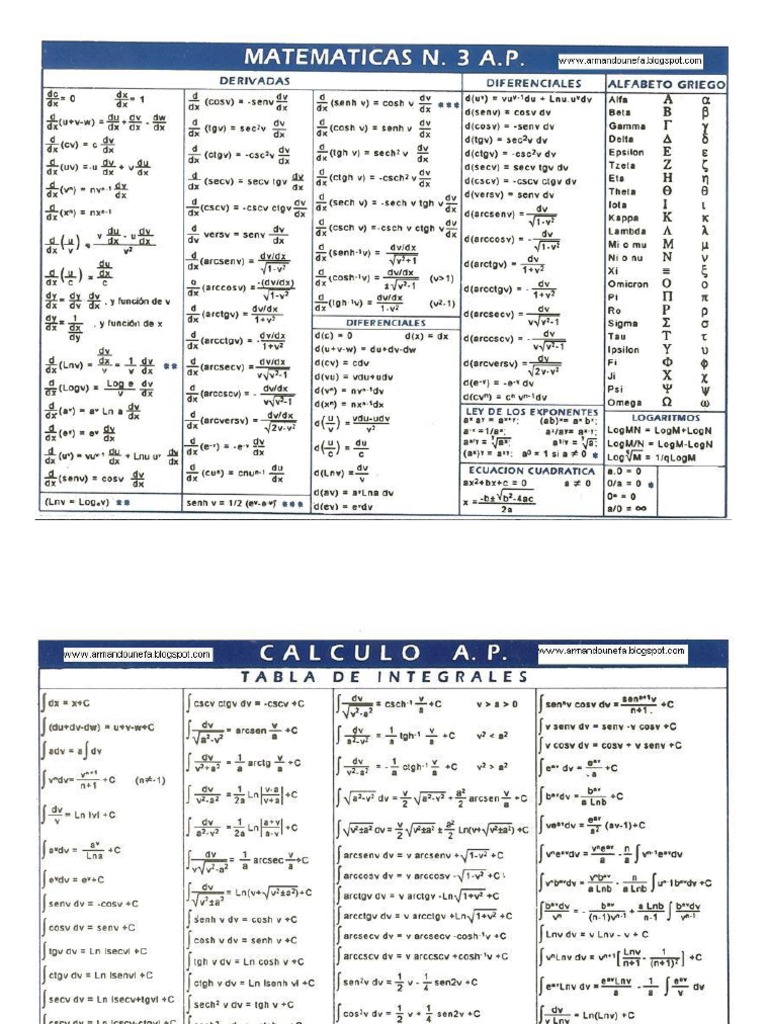 MATEMATICAS N. 3 A.P.
www.armandounefa.blogspot.com
DERIVADAS
dc/dx = 0 dx/dx = 1
d/dx (u+v-w) = du/dx + dv/dx - dw/dx
d/dx (cv) = c dv/dx
d/dx (uv) = u dv/dx + v du/dx
d/dx (vⁿ) = nvⁿ⁻¹ dv/dx
d/dx (xⁿ) = nxⁿ⁻¹
d/dx (u/v) = (v du/dx - u dv/dx)/v²
d/dx (u/c) = (du/dx)/c
dy/dx = dy/dv dv/dx , y función de v
dy/dx = 1/(dx/dy) , y función de x
d/dx (Lnv) = (dv/dx)/v = 1/v dv/dx **
d/dx (Logv) = Log e/v dv/dx
d/dx (aᵛ) = aᵛ Ln a dv/dx
d/dx (eᵛ) = eᵛ dv/dx
d/dx (uᵛ) = vuᵛ⁻¹ du/dx + Lnu uᵛ dv/dx
d/dx (senv) = cosv dv/dx
(Lnv = Logₑv) **
d/dx (cosv) = -senv dv/dx
d/dx (tgv) = sec²v dv/dx
d/dx (ctgv) = -csc²v dv/dx
d/dx (secv) = secv tgv dv/dx
d/dx (cscv) = -cscv ctgv dv/dx
d/dv versv = senv dv/dx
d/dx (arcsenv) = (dv/dx)/√(1-v²)
d/dx (arccosv) = -(dv/dx)/√(1-v²)
d/dx (arctgv) = (dv/dx)/(1+v²)
d/dx (arcctgv) = - (dv/dx)/(1+v²)
d/dx (arcsecv) = (dv/dx)/(v√(v²-1))
d/dx (arccscv) = - (dv/dx)/(v√(v²-1))
d/dx (arcversv) = (dv/dx)/√(2v-v²)
d/dx (e⁻ᵛ) = -e⁻ᵛ dv/dx
d/dx (cuⁿ) = cnuⁿ⁻¹ du/dx
senh v = 1/2 (eᵛ-e⁻ᵛ) ***
d/dx (senh v) = cosh v dv/dx ***
d/dx (cosh v) = senh v dv/dx
d/dx (tgh v) = sech² v dv/dx
d/dx (ctgh v) = -csch² v dv/dx
d/dx (sech v) = -sech v tgh v dv/dx
d/dx (csch v) = -csch v ctgh v dv/dx
d/dx (senh⁻¹v) = (dv/dx)/√(v²+1)
d/dx (cosh⁻¹v) = (dv/dx)/(±√(v²-1)) (v>1)
d/dx (tgh⁻¹v) = (dv/dx)/(1-v²)
DIFERENCIALES
d(c) = 0 d(x) = dx
d(u+v-w) = du+dv-dw
d(cv) = cdv
d(vu) = vdu+udv
d(vⁿ) = nvⁿ⁻¹dv
d(xⁿ) = nxⁿ⁻¹dx
d(u/v) = (vdu-udv)/v²
d(u/c) = du/c
d(Lnv) = dv/v
d(av) = aᵛLna dv
d(ev) = eᵛdv
DIFERENCIALES
d(uᵛ) = vuᵛ⁻¹du + Lnu.uᵛdv
d(senv) = cosv dv
d(cosv) = -senv dv
d(tgv) = sec²v dv
d(ctgv) = -csc²v dv
d(secv) = secv tgv dv
d(cscv) = -cscv ctgv dv
d(versv) = senv dv
d(arcsenv) = dv/√(1-v²)
d(arccosv) = - dv/√(1-v²)
d(arctgv) = dv/(1+v²)
d(arcctgv) = - dv/(1+v²)
d(arcsecv) = dv/(v√(v²-1))
d(arccscv) = - dv/(v√(v²-1))
d(arcversv) = dv/√(2v-v²)
d(e⁻ᵛ) = -e⁻ᵛ dv
d(cvⁿ) = cⁿ vⁿ⁻¹dv
LEY DE LOS EXPONENTES
aˣ aʸ = aˣ⁺ʸ; (ab)ˣ= aˣ bˣ;
a⁻ˣ =1/aˣ; aˣ/aʸ= aˣ⁻ʸ
a¹/ʸ = ʸ√a;
(aˣ)ʸ = aˣʸ; a⁰ = 1 si a ≠ 0 *
ECUACION CUADRATICA
ax²+bx+c = 0 a ≠ 0
x = (-b±√(b²-4ac))/2a
ALFABETO GRIEGO
Alfa Α α
Beta Β β
Gamma Γ γ
Delta Δ δ
Epsilon Ε ε
Tzeta Ζ ζ
Eta Η η
Theta Θ θ
Iota Ι ι
Kappa Κ κ
Lambda Λ λ
Mi o mu Μ μ
Ni o nu Ν ν
Xi ≡ ξ
Omicron Ο ο
Pi Π π
Ro Ρ ρ
Sigma Σ σ
Tau Τ τ
Ipsilon Υ υ
Fi Φ φ
Ji Χ χ
Psi Ψ ψ
Omega Ω ω
LOGARITMOS
LogMN = LogM+LogN
LogM/N = LogM-LogN
Log ᑫ√M = 1/qLogM
a.0 = 0
0/a = 0 *
0ᵃ = 0
a/0 = ∞
www.armandounefa.blogspot.com
CALCULO A.P.
www.armandounefa.blogspot.com
TABLA DE INTEGRALES
∫dx = x+C
∫(du+dv-dw) = u+v-w+C
∫adv = a∫dv
∫vⁿdv= vⁿ⁺¹/(n+1) +C (n≠-1)
∫dv/v = Ln lvl +C
∫aᵛdv = aᵛ/Lna +C
∫eᵛdv = eᵛ+C
∫senv dv = -cosv +C
∫cosv dv = senv +C
∫tgv dv = Ln lsecvl +C
∫ctgv dv = Ln lsenvl +C
∫secv dv = Ln lsecv+tgvl +C
∫cscv dv = Ln lcscv-ctgvl +C
∫cscv ctgv dv = -cscv +C
∫dv/√(a²-v²) = arcsen v/a +C
∫dv/(v²+a²) = 1/a arctg v/a +C
∫dv/(v²-a²) = 1/2a Ln|(v-a)/(v+a)| +C
∫dv/(a²-v²) = 1/2a Ln|(a+v)/(a-v)| +C
∫dv/(v√(v²-a²)) = 1/a arcsec v/a +C
∫dv/√(v²±a²) = Ln(v+√(v²±a²))+C
∫senh v dv = cosh v +C
∫cosh v dv = senh v +C
∫tgh v dv = Ln cosh v +C
∫ctgh v dv = Ln lsenh vl +C
∫sech² v dv = tgh v +C
∫dv/√(v²-a²) = csch⁻¹ v/a +C v > a > 0
∫dv/(a²-v²) = 1/a tgh⁻¹ v/a +C v² < a²
∫dv/(v²-a²) = - 1/a ctgh⁻¹ v/a +C v² > a²
∫√(a²-v²) dv = v/2 √(a²-v²) + a²/2 arcsen v/a +C
∫√(v²±a²) dv = v/2 √(v²±a²) ± a²/2 Ln(v+√(v²±a²))+C
∫arcsenv dv = v arcsenv +√(1-v²) +C
∫arccosv dv = v arccosv -√(1-v²) +C
∫arctgv dv = v arctgv -Ln√(1+v²) +C
∫arcctgv dv = v arcctgv +Ln√(1+v²) +C
∫arcsecv dv = v arcsecv -cosh⁻¹v +C
∫arccscv dv = v arccscv +cosh⁻¹v +C
∫sen²v dv = 1/2 v - 1/4 sen2v +C
∫cos²v dv = 1/2 v + 1/4 sen2v +C
∫senⁿv cosv dv = senⁿ⁺¹v/(n+1) +C
∫v senv dv = senv -v cosv +C
∫v cosv dv = cosv + v senv +C
∫eᵃᵛ dv = eᵃᵛ/a +C
∫bᵃᵛdv = bᵃᵛ/(a Lnb) +C
∫veᵃᵛdv = eᵃᵛ/a² (av-1)+C
∫vⁿeᵃᵛdv = vⁿeᵃᵛ/a - n/a ∫vⁿ⁻¹eᵃᵛdv
∫Lnv dv = v Lnv - v + C
∫vⁿLnv dv = vⁿ⁺¹[Lnv/(n+1) - 1/(n+1)²] +C
∫eᵃᵛLnv dv = eᵃᵛLnv/a - 1/a ∫eᵃᵛ/v dv
∫dv/(v Lnv) = Ln(Lnv) +C